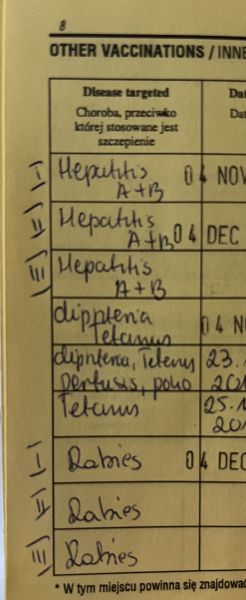 8
OTHER VACCINATIONS / INNE
Disease targeted
Choroba, przeciwko
której stosowane jest
szczepienie
Dat
Dat
I Hepatitis
A+B 04 NOV
II Hepatitis
A+B 04 DEC
III Hepatitis
A+B
diphtheria
Tetanus 04 N
diphteria, Tetanus 23.
pertusis, polio 20
Tetanus 25.1
20
I Rabies 04 DEC
II Rabies
III Rabies
* W tym miejscu powinna się znajdować